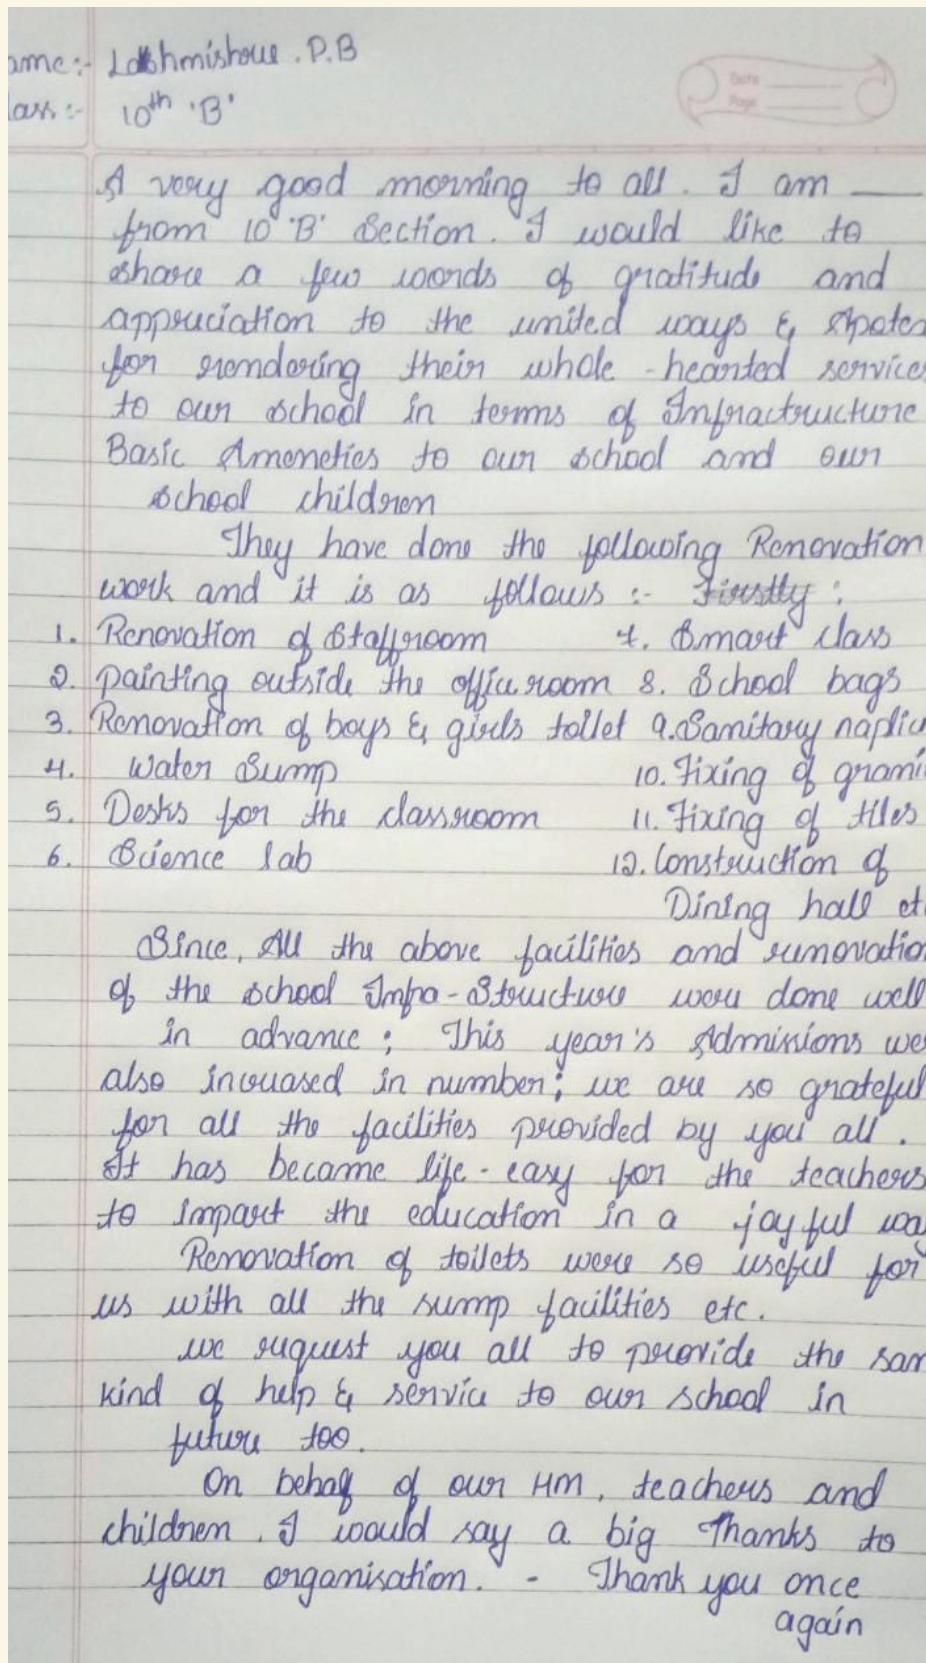 ame:- Lakshmishree . P.B
lass :- 10th 'B'
Date
Page
A very good morning to all. I am ___
from 10 'B' Section. I would like to
share a few words of gratitude and
appreciation to the united ways &
for rendering their whole - hearted service
to our school in terms of Infractructure
Basic Ameneties to our school and our
school children
They have done the following Renovation
work and it is as follows :- Firstly :
1. Renovation of Staffroom 7. Smart class
2. painting outside the office room 8. School bags
3. Renovation of boys & girls toilet 9. Sanitary napki
4. Water Sump 10. Fixing of grani
5. Desks for the classroom 11. Fixing of tiles
6. Science lab 12. Construction of
Dining hall et
Since, All the above facilities and renovatio
of the school Infra - Structure were done well
in advance ; This year's Admissions we
also increased in number ; we are so grateful
for all the facilities provided by you all .
It has became life - easy for the teachers
to impart the education in a joyful wa
Renovation of toilets were so useful for
us with all the sump facilities etc.
we request you all to provide the sam
kind of help & service to our school in
future too.
On behalf of our HM, teachers and
children, I would say a big Thanks to
your organisation. - Thank you once
again